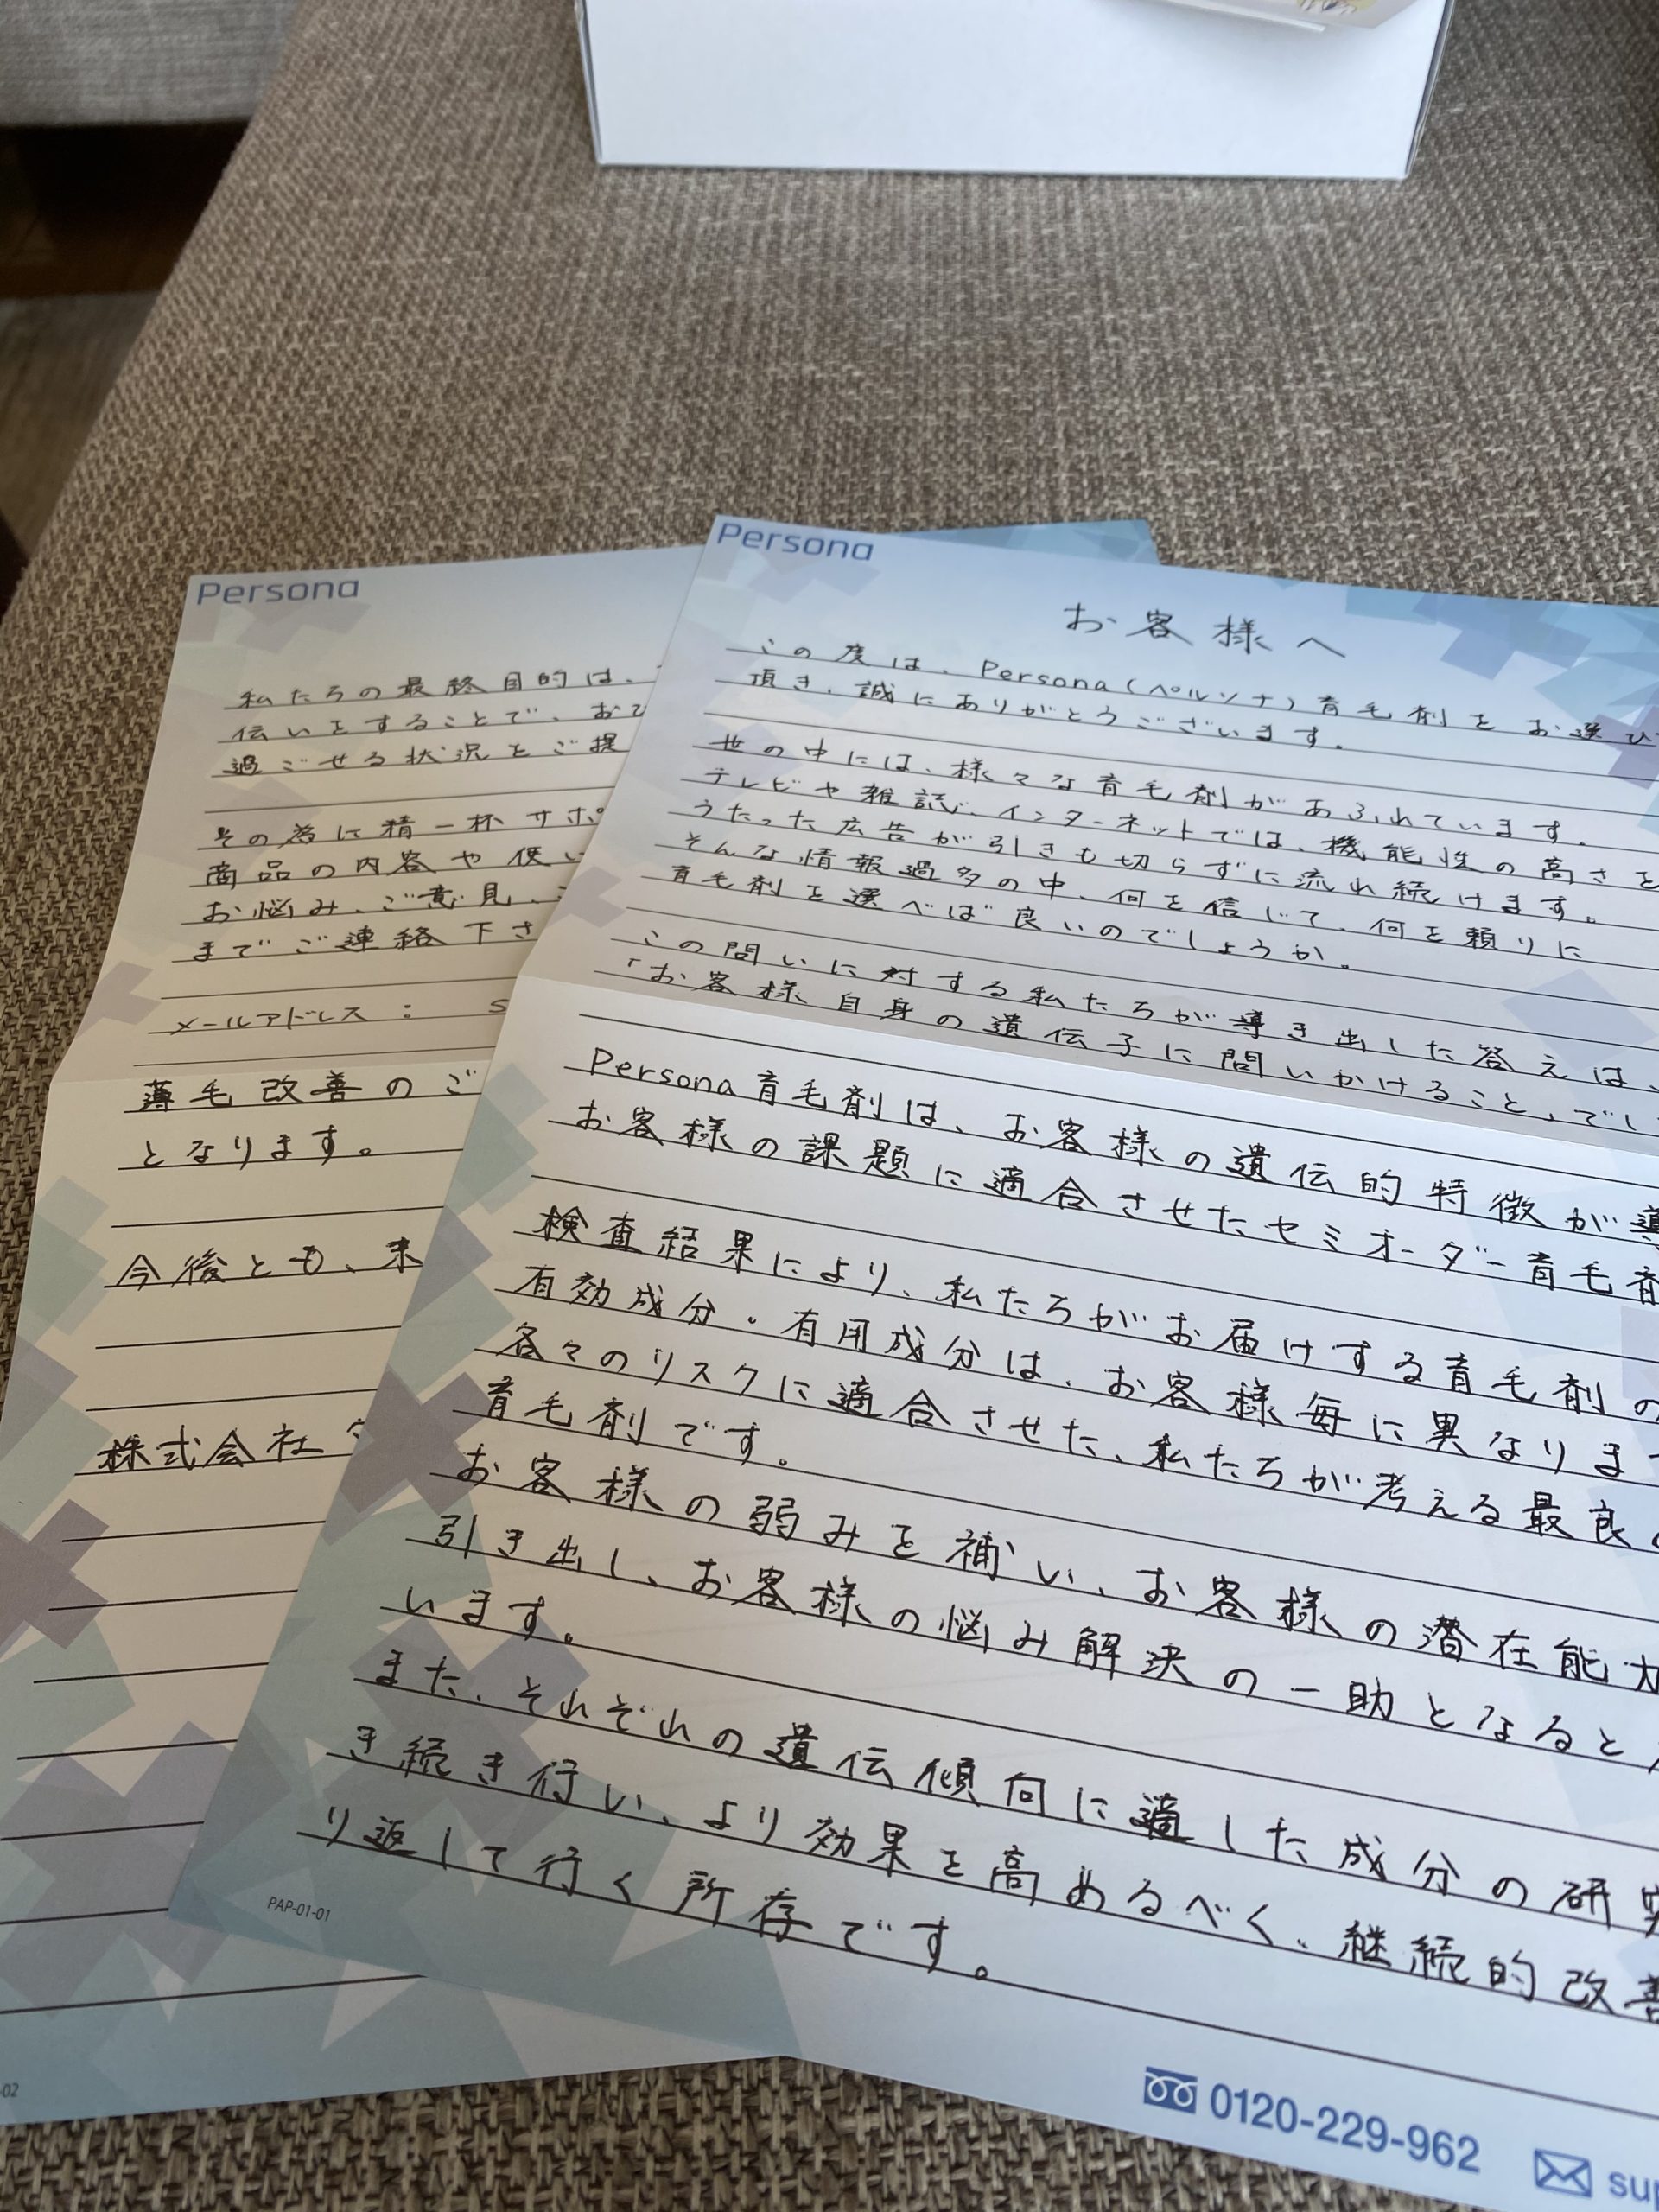 Persona
私たちの最終目的は、
伝いをすることで、おひ
過ごせる状況をご提
その為に精一杯サポ
商品の内容や使い
お悩み、ご意見、
までご連絡下さ
メールアドレス： s
薄毛改善のご
となります。
今後とも、末
株式会社
-02
Persona
お客様へ
この度は、Persona（ペルソナ）育毛剤をお選び
頂き、誠にありがとうございます。
世の中には、様々な育毛剤があふれています。
テレビや雑誌、インターネットでは、機能性の高さを
うたった広告が引きも切らずに流れ続けます。
そんな情報過多の中、何を信じて、何を頼りに
育毛剤を選べば良いのでしょうか。
この問いに対する私たちが導き出した答えは、
「お客様自身の遺伝子に問いかけること」でし
Persona育毛剤は、お客様の遺伝的特徴が導
お客様の課題に適合させたセミオーダー育毛剤
検査結果により、私たちがお届けする育毛剤の
有効成分・有用成分は、お客様毎に異なりま
各々のリスクに適合させた、私たちが考える最良の
育毛剤です。
お客様の弱みを補い、お客様の潜在能力
引き出し、お客様の悩み解決の一助となると
います。
また、それぞれの遺伝傾向に適した成分の研究
き続き行い、より効果を高めるべく、継続的改善
り返して行く所存です。
PAP-01-01
0120-229-962
sup